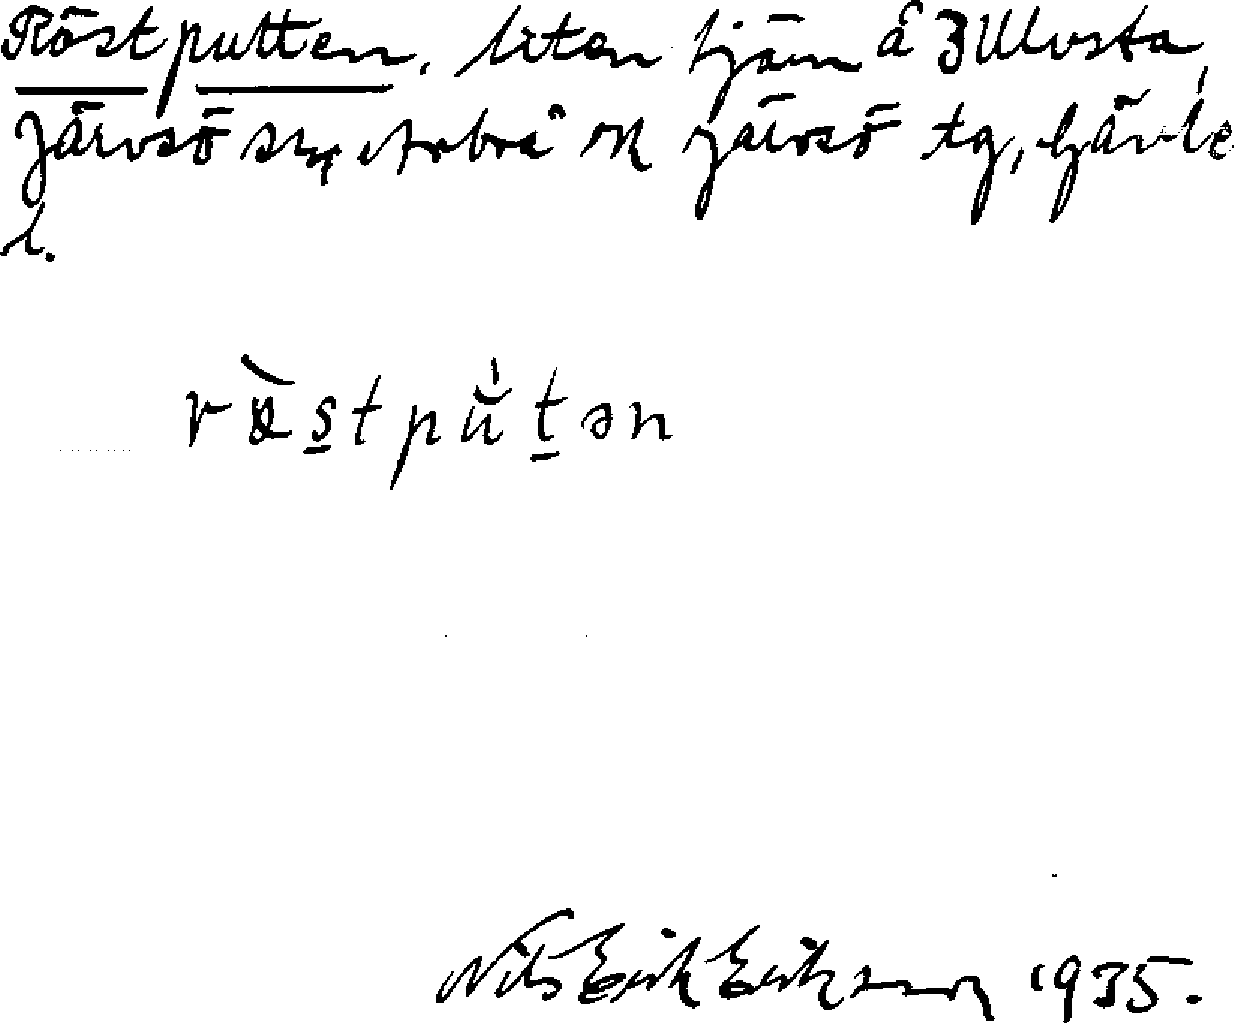 Röstputten, liten tjärn å 3 Ullvsta,
Järvsö sn, Arbrå o Järvsö tg, Gävle
l.
rö̀stpu̇̆tən
Nils Erik Eriksson 1935.